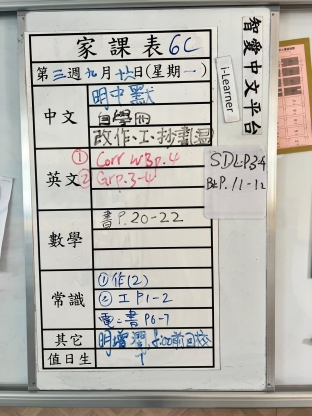 家課表 6C
第三週九月十六日(星期一)
中文
明中默
自學冊
改作、工、抄書(三)
英文
① Corr WBp.4
② Grp.3-4
數學
書P.20-22
常識
①作(2)
② 工P1-2
電:書P6-7
其它
明增潤,8:00前回校
值日生
智愛中文平台
i-Learner
SDLP.3-4
BLP.11-12